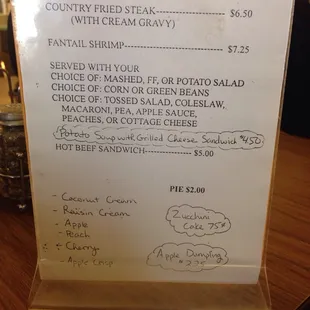 COUNTRY FRIED STEAK ------------ $6.50
(WITH CREAM GRAVY)
FANTAIL SHRIMP-------------------- $7.25
SERVED WITH YOUR
CHOICE OF: MASHED, FF, OR POTATO SALAD
CHOICE OF: CORN OR GREEN BEANS
CHOICE OF: TOSSED SALAD, COLESLAW,
MACARONI, PEA, APPLE SAUCE,
PEACHES, OR COTTAGE CHEESE
Potato Soup with Grilled Cheese Sandwich $4.50
HOT BEEF SANDWICH--------------- $5.00
PIE $2.00
- Coconut Cream
- Raisin Cream
- Apple
- Peach
- Cherry
- Apple Crisp
Zucchini
Cake 75¢
Apple Dumpling
$2.25